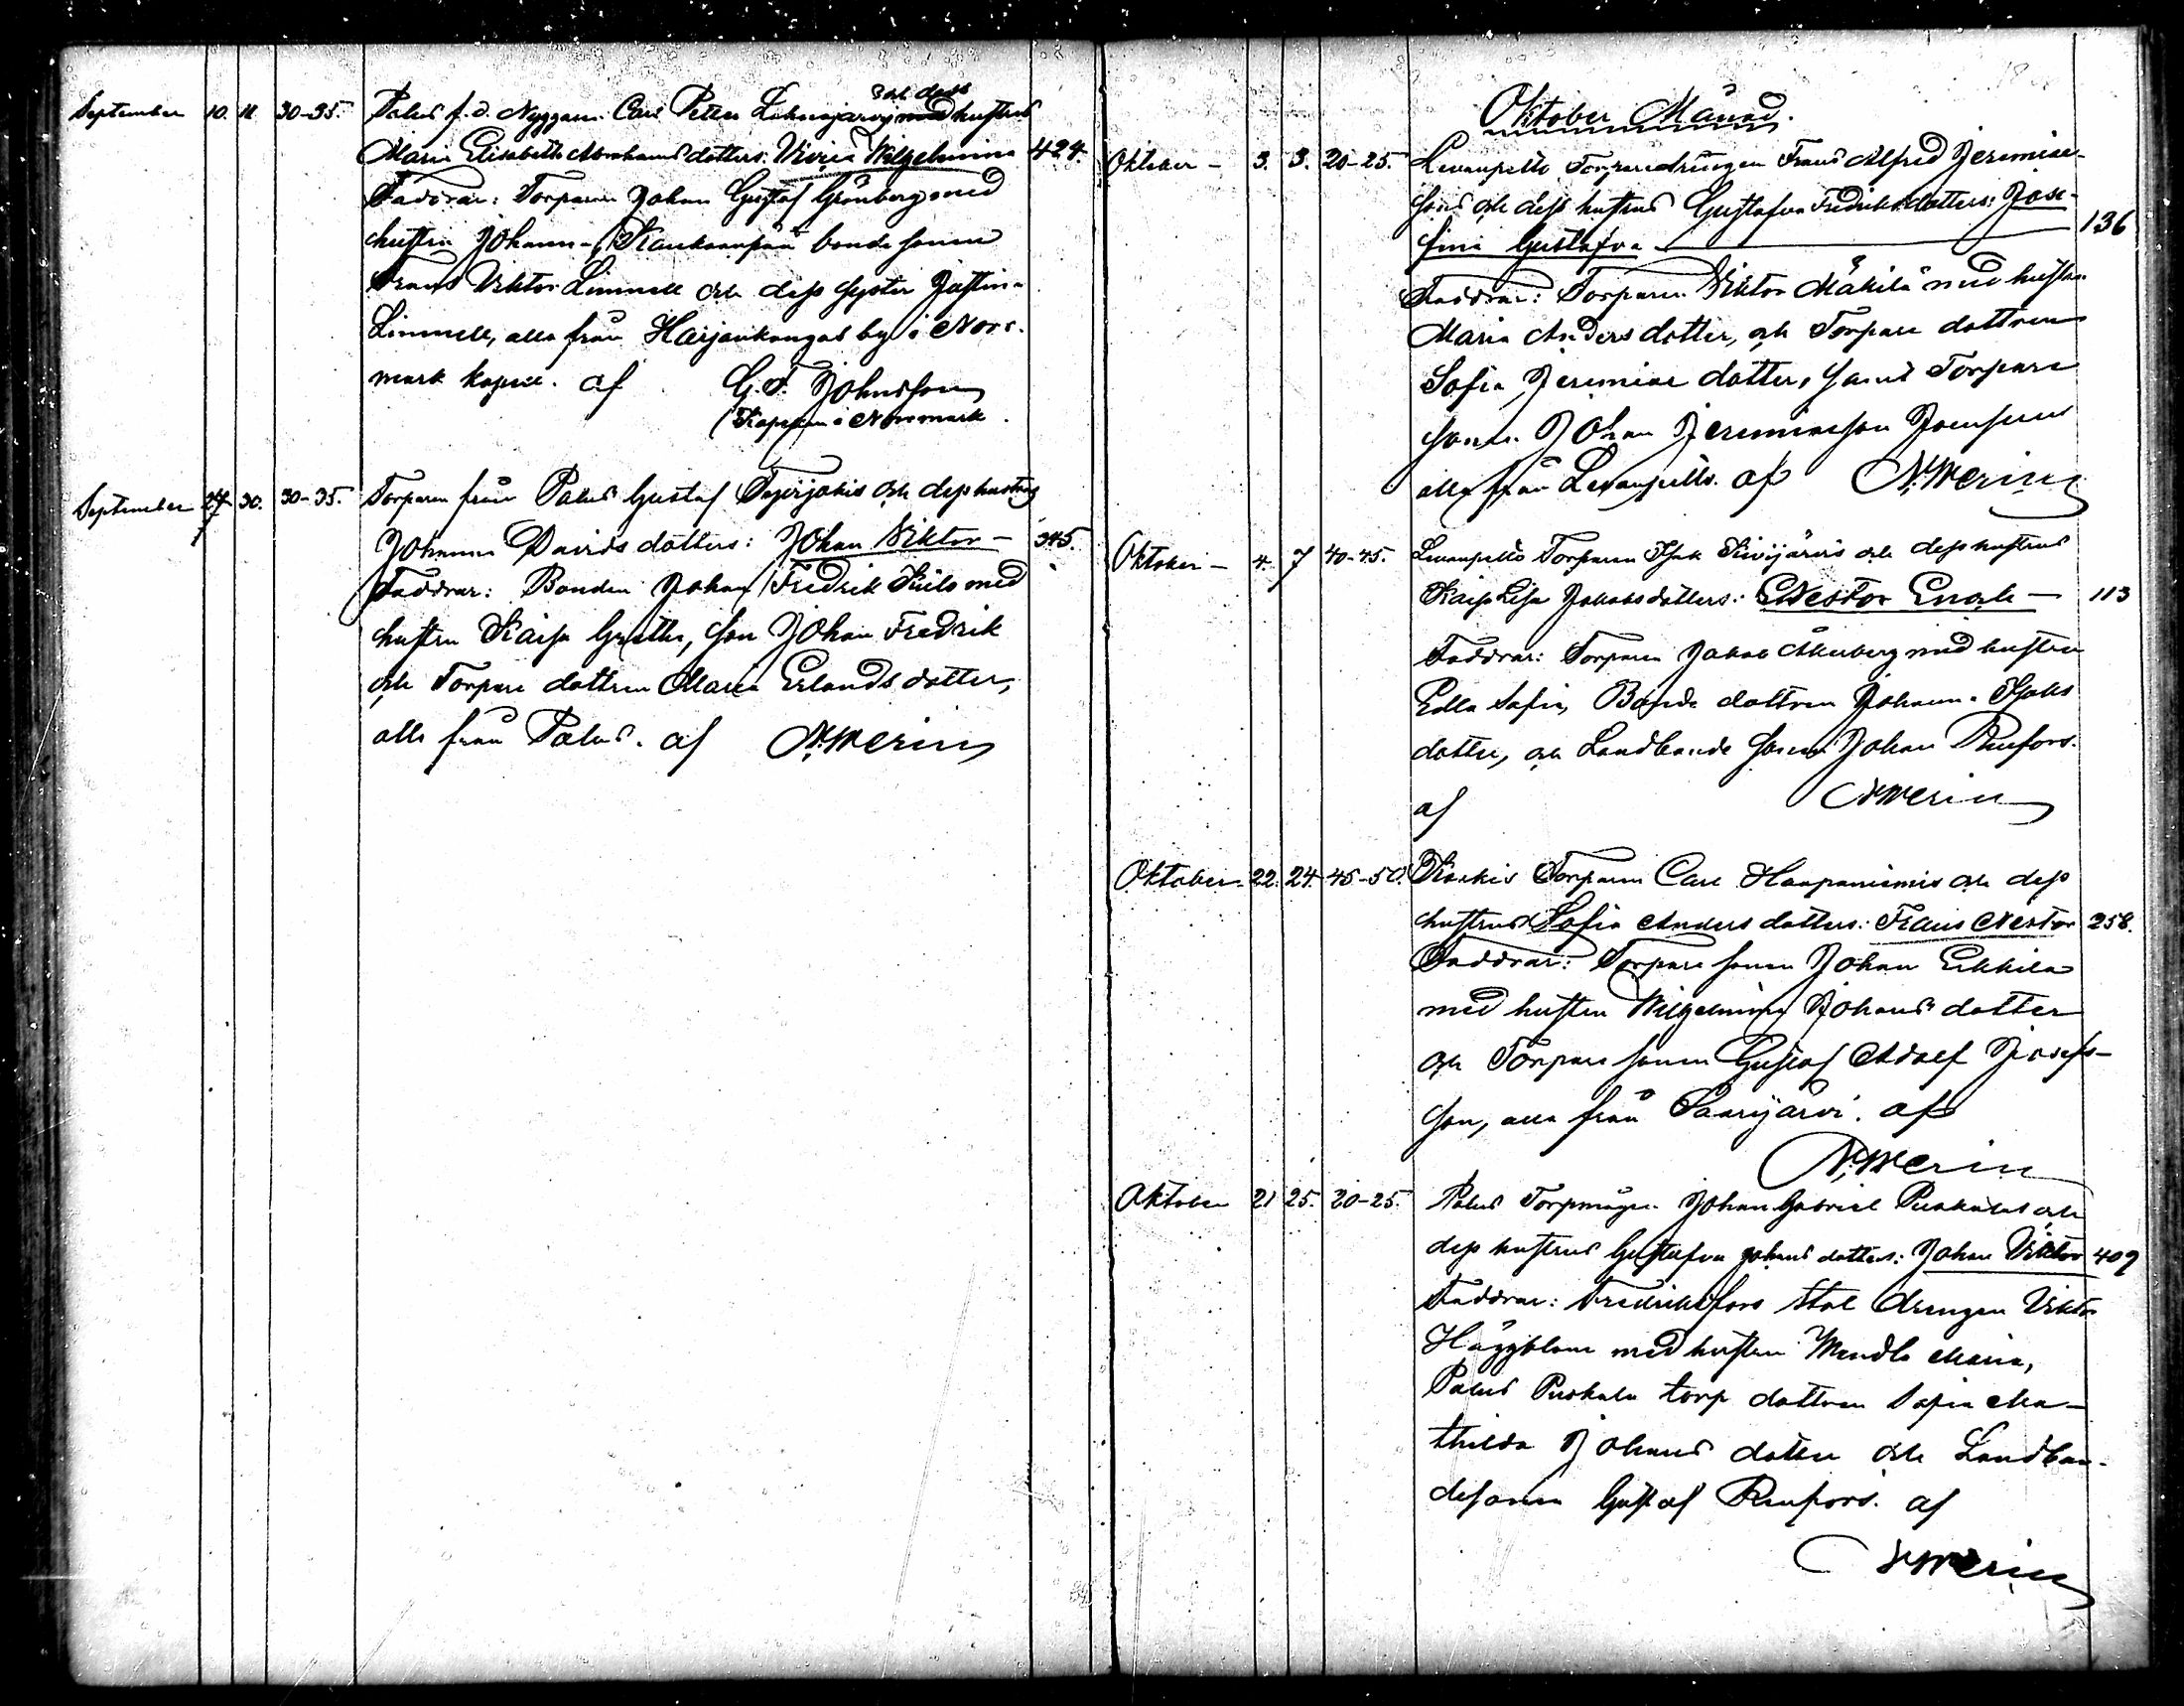 och dess
September 10. 11. 30-35. Palus f.d. Nybygg. Carl Petter Lehmijärvi med hustrus
Maria Elisabeth Abrahams dotters: Wivia Wilhelmina 424.
Faddrar: Torparen Johan Gustaf Grönberg med
hustru Johanna, Kankaanpää bonde sonen
Frans Viktor Linnell och dess syster Justina
Linnell, alla från Harjankangas by i Norr-
mark kapell. af G. F. Johnsson
Kaplan i Norrmark.
September 27. 30. 30-35. Torparen från Palus Gustaf Teyrjokis och dess hustrus
Johanna Davids dotters: Johan Viktor - 345.
Faddrar: Bonden Johan Fredrik Kulo med
hustru Kaisa Greta, son Johan Fredrik
och Torpare dottren Maria Erlands dotter,
alla från Palus. af N. Merin
Oktober Månad.
Oktober - 3. 3. 20-25. Levanpelto Torparedrängen Frans Alfred Jeremiae
sons och dess hustrus Gustafva Fredriks dotters: Jose-
fina Gustafva 136
Faddrar: Torparen Viktor Mäkilä med hustru
Maria Anders dotter, och Torpare dottren
Sofia Jeremiae dotter, samt Torpare
sonen Johan Jeremiaesson
alla från Levanpelto. af N. Merin
Oktober - 4. 7 40-45. Levanpelto Torparen Isak Kivijärvis och dess hustrus
Kaisa Lisa Jakobs dotters: Nestor Enok - 113
Faddrar: Torparen Jakob Åkerberg med hustru
Edla Sofia, Bonde dottren Johanna Isaks
dotter, och Landbonde sonen Johan Renfors.
af N. Merin
Oktober 22. 24. 45-50. Koskis Torparen Carl Haapaniemis och dess
hustrus Sofia Anders dotters: Frans Nestor 258.
Faddrar: Torpare sonen Johan Erkkilä
med hustru Wilhelmina Johans dotter
och Torpare sonen Gustaf Adolf Josefs-
son, alla från Saarijärvi. af
N. Merin
Oktober 21 25. 20-25. Palus Torpmågen Johan Gabriel Puskalas och
dess hustrus Gustafva Johans dotters: Johan Viktor 409
Faddrar: Fredriksfors Stal drengen Viktor
Häggblom med hustru Wendla Maria,
Palus Puskala torp dottren Sofia Ma-
thilda Johans dotter och Landbon-
desonen Gustaf Renfors. af
N. Merin